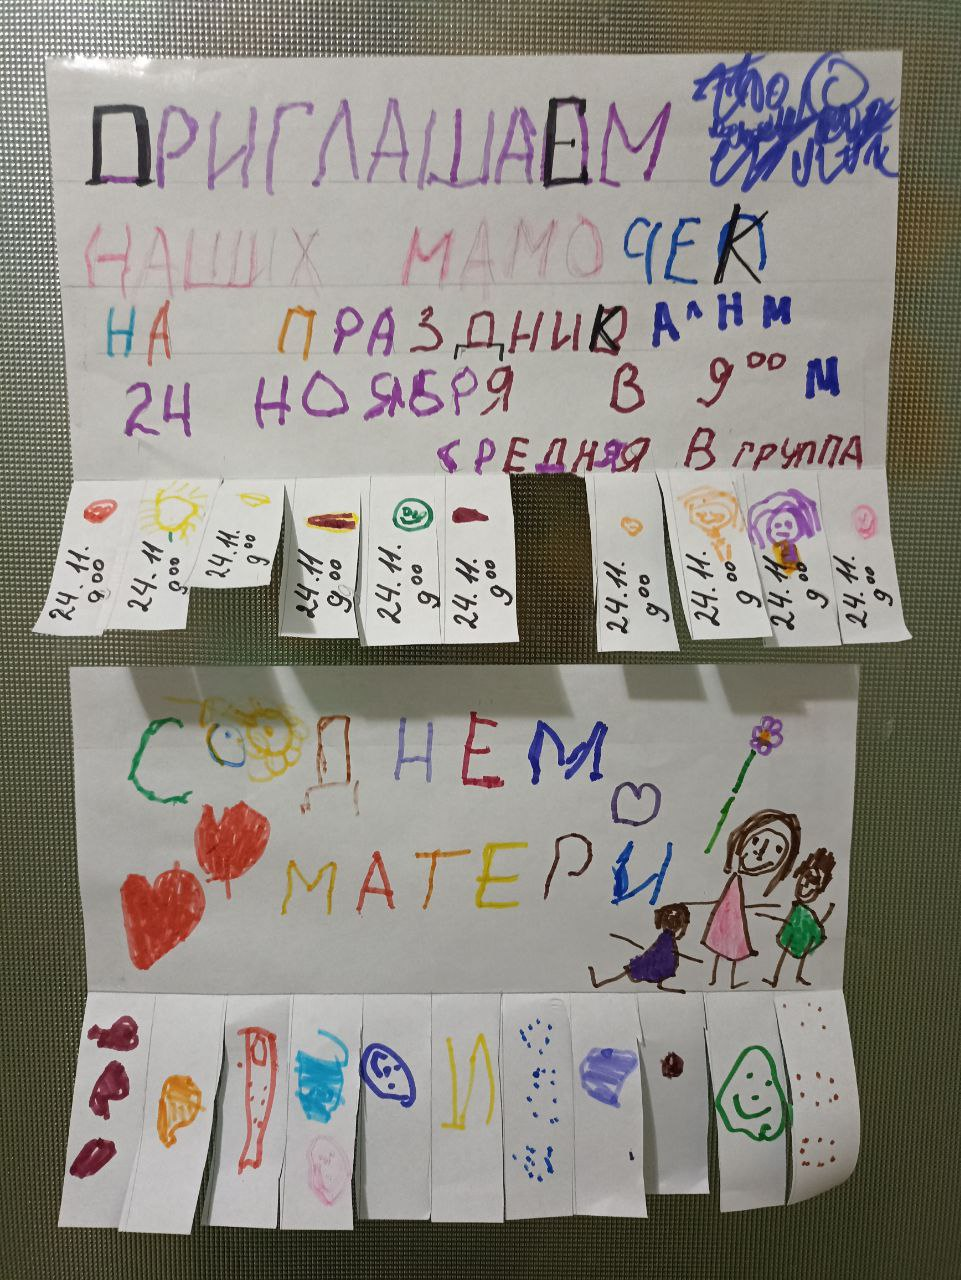 ПРИГЛАШАЕМ
НАШИХ МАМОЧЕК
НА ПРАЗДНИК АЛНМ
24 НОЯБРЯ В 9⁰⁰ М
СРЕДНЯЯ В ГРУППА
24.11. 9⁰⁰
24.11 9⁰⁰
24.11. 9⁰⁰
24.11 9⁰⁰
24.11. 9⁰⁰
24.11. 9⁰⁰
24.11. 9⁰⁰
24.11. 9⁰⁰
24.11. 9⁰⁰
24.11. 9⁰⁰
С ДНЕМ
МАТЕРИ
И